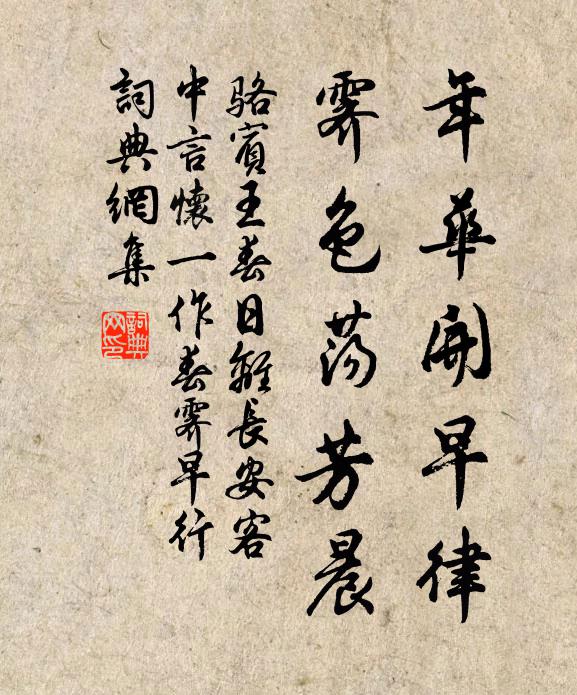 年華開早律
霽色蕩芳晨
駱賓王春日離長安客
中言懷一作春霽早行
詞典網集
詞典
网印